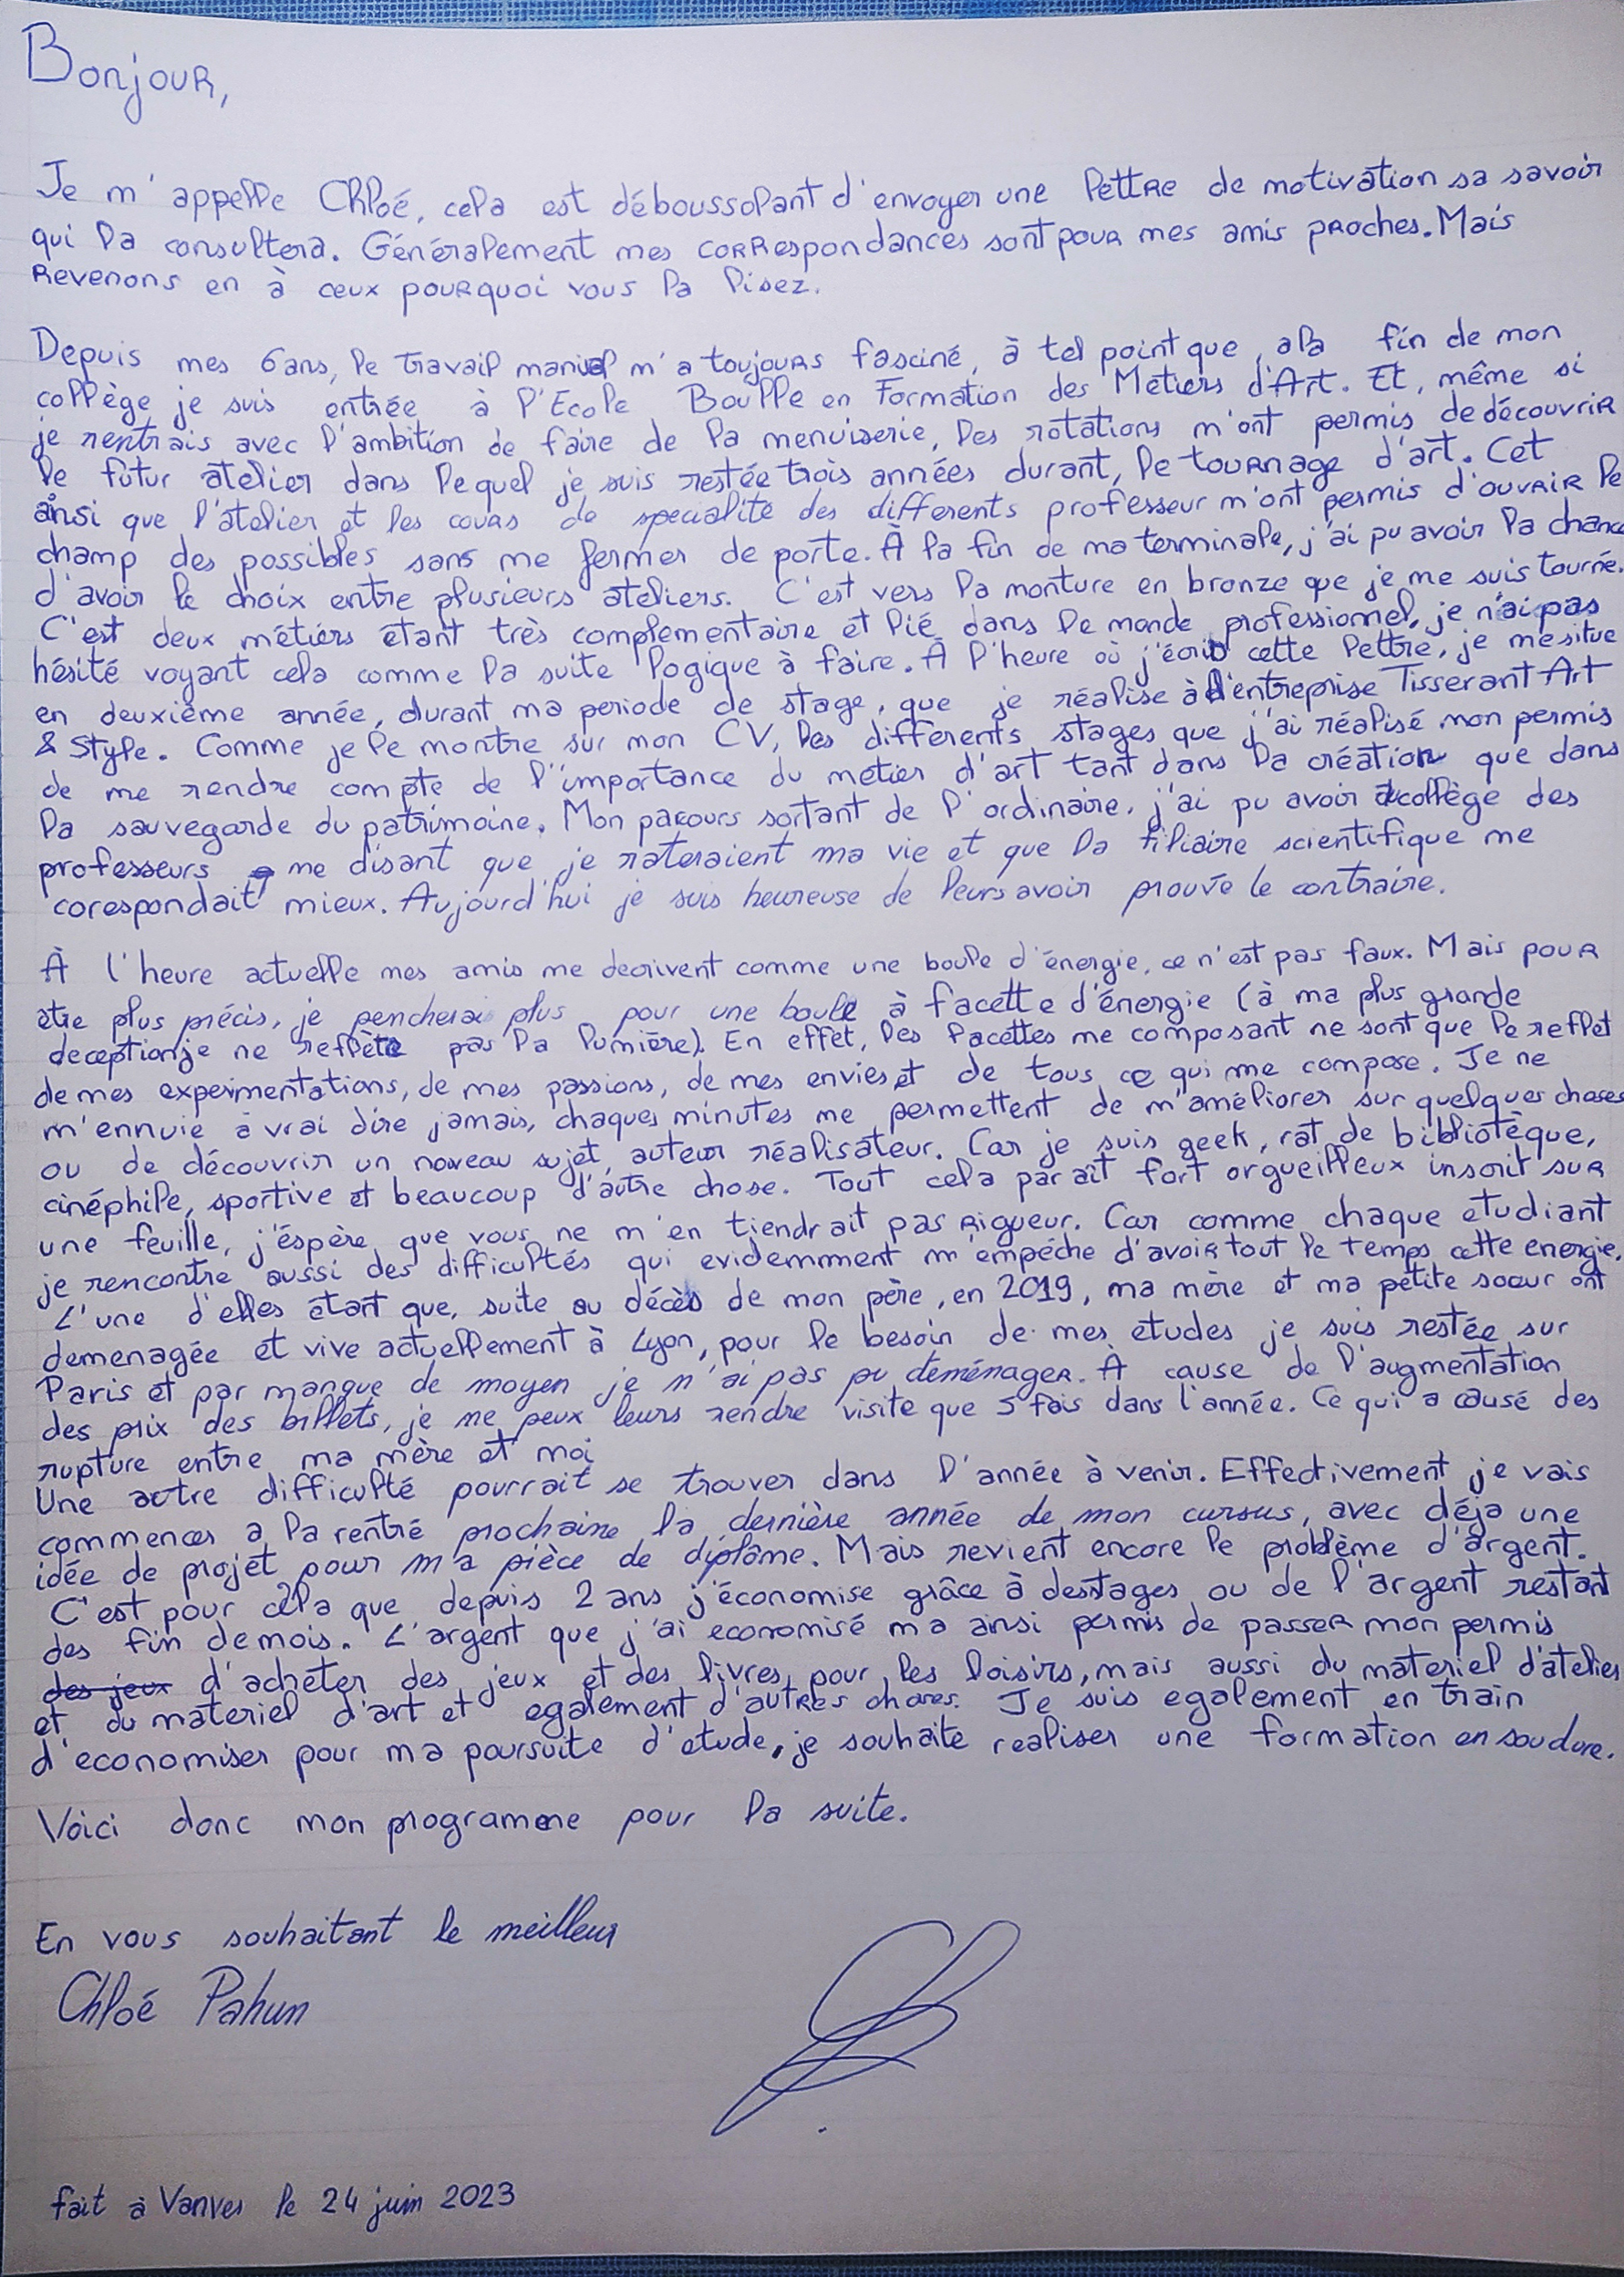 Bonjour,
Je m'appelle Chloé, cela est déboussolant d'envoyer une lettre de motivation sa savoir
qui la consultera. Généralement mes correspondances sont pour mes amis proches. Mais
revenons en à ceux pourquoi vous la lisez.
Depuis mes 6 ans, le travail manuel m'a toujours fasciné, à tel point que, a la fin de mon
collège je suis entrée à l'Ecole Boulle en Formation des Métiers d'Art. Et, même si
je rentrais avec l'ambition de faire de la menuiserie, les rotations m'ont permis de découvrir
le futur atelier dans lequel je suis restée trois années durant, le tournage d'art. Cet
ainsi que l'atelier et les cours de specialité des differents professeur m'ont permis d'ouvrir le
champ des possibles sans me fermer de porte. À la fin de ma terminale, j'ai pu avoir la chance
d'avoir le choix entre plusieurs ateliers. C'est vers la monture en bronze que je me suis tourné.
C'est deux métiers étant très complementaire et lié dans le monde professionnel, je n'ai pas
hésité voyant cela comme la suite logique à faire. À l'heure où j'écrit cette lettre, je me situe
en deuxième année, durant ma periode de stage, que je réalise à l'entreprise Tisserant Art
& Style. Comme je le montre sur mon CV, les differents stages que j'ai réalisé mon permis
de me rendre compte de l'importance du métier d'art tant dans la création que dans
la sauvegarde du patrimoine. Mon parcours sortant de l'ordinaire, j'ai pu avoir collège des
professeurs me disant que je rateraient ma vie et que la filiaire scientifique me
corespondait mieux. Aujourd'hui je suis heureuse de leurs avoir prouvé le contraire.
À l'heure actuelle mes amis me decrivent comme une boule d'énergie, ce n'est pas faux. Mais pour
être plus précis, je pencherai plus pour une boule à facette d'énergie (à ma plus grande
deception je ne reflète pas la lumière). En effet, les facettes me composant ne sont que le reflet
de mes experimentations, de mes passions, de mes envies et de tous ce qui me compose. Je ne
m'ennuie à vrai dire jamais, chaques minutes me permettent de m'améliorer sur quelques choses
ou de découvrir un noveau sujet, auteur réalisateur. Car je suis geek, rat de bibliotèque,
cinéphile, sportive et beaucoup d'autre chose. Tout cela paraît fort orgueilleux inscrit sur
une feuille, j'éspère que vous ne m'en tiendrait pas rigueur. Car comme chaque étudiant
je rencontre aussi des difficultés qui evidemment m'empéche d'avoir tout le temps cette energie.
L'une d'elles étant que, suite au décès de mon père, en 2019, ma mère et ma petite soeur ont
demenagée et vive actuellement à Lyon, pour le besoin de mes études je suis restée sur
Paris et par manque de moyen je n'ai pas pu déménager. À cause de l'augmentation
des prix des billets, je ne peux leurs rendre visite que 5 fois dans l'année. Ce qui a causé des
rupture entre ma mère et moi
Une autre difficulté pourrait se trouver dans l'année à venir. Effectivement je vais
commencer a la rentré prochaine la dernière année de mon cursus, avec déja une
idée de projet pour ma pièce de diplôme. Mais revient encore le problème d'argent.
C'est pour cela que depuis 2 ans j'économise grâce à des stages ou de l'argent restant
des fin de mois. L'argent que j'ai economisé m'a ainsi permis de passer mon permis
des jeux d'acheter des jeux et des livres pour les loisirs, mais aussi du materiel d'atelier
et du materiel d'art et egalement d'autres choses. Je suis egalement en train
d'economiser pour ma poursuite d'étude, je souhaite realiser une formation en soudure.
Voici donc mon programme pour la suite.
En vous souhaitant le meilleur
Chloé Pahun
fait à Vanves le 24 juin 2023